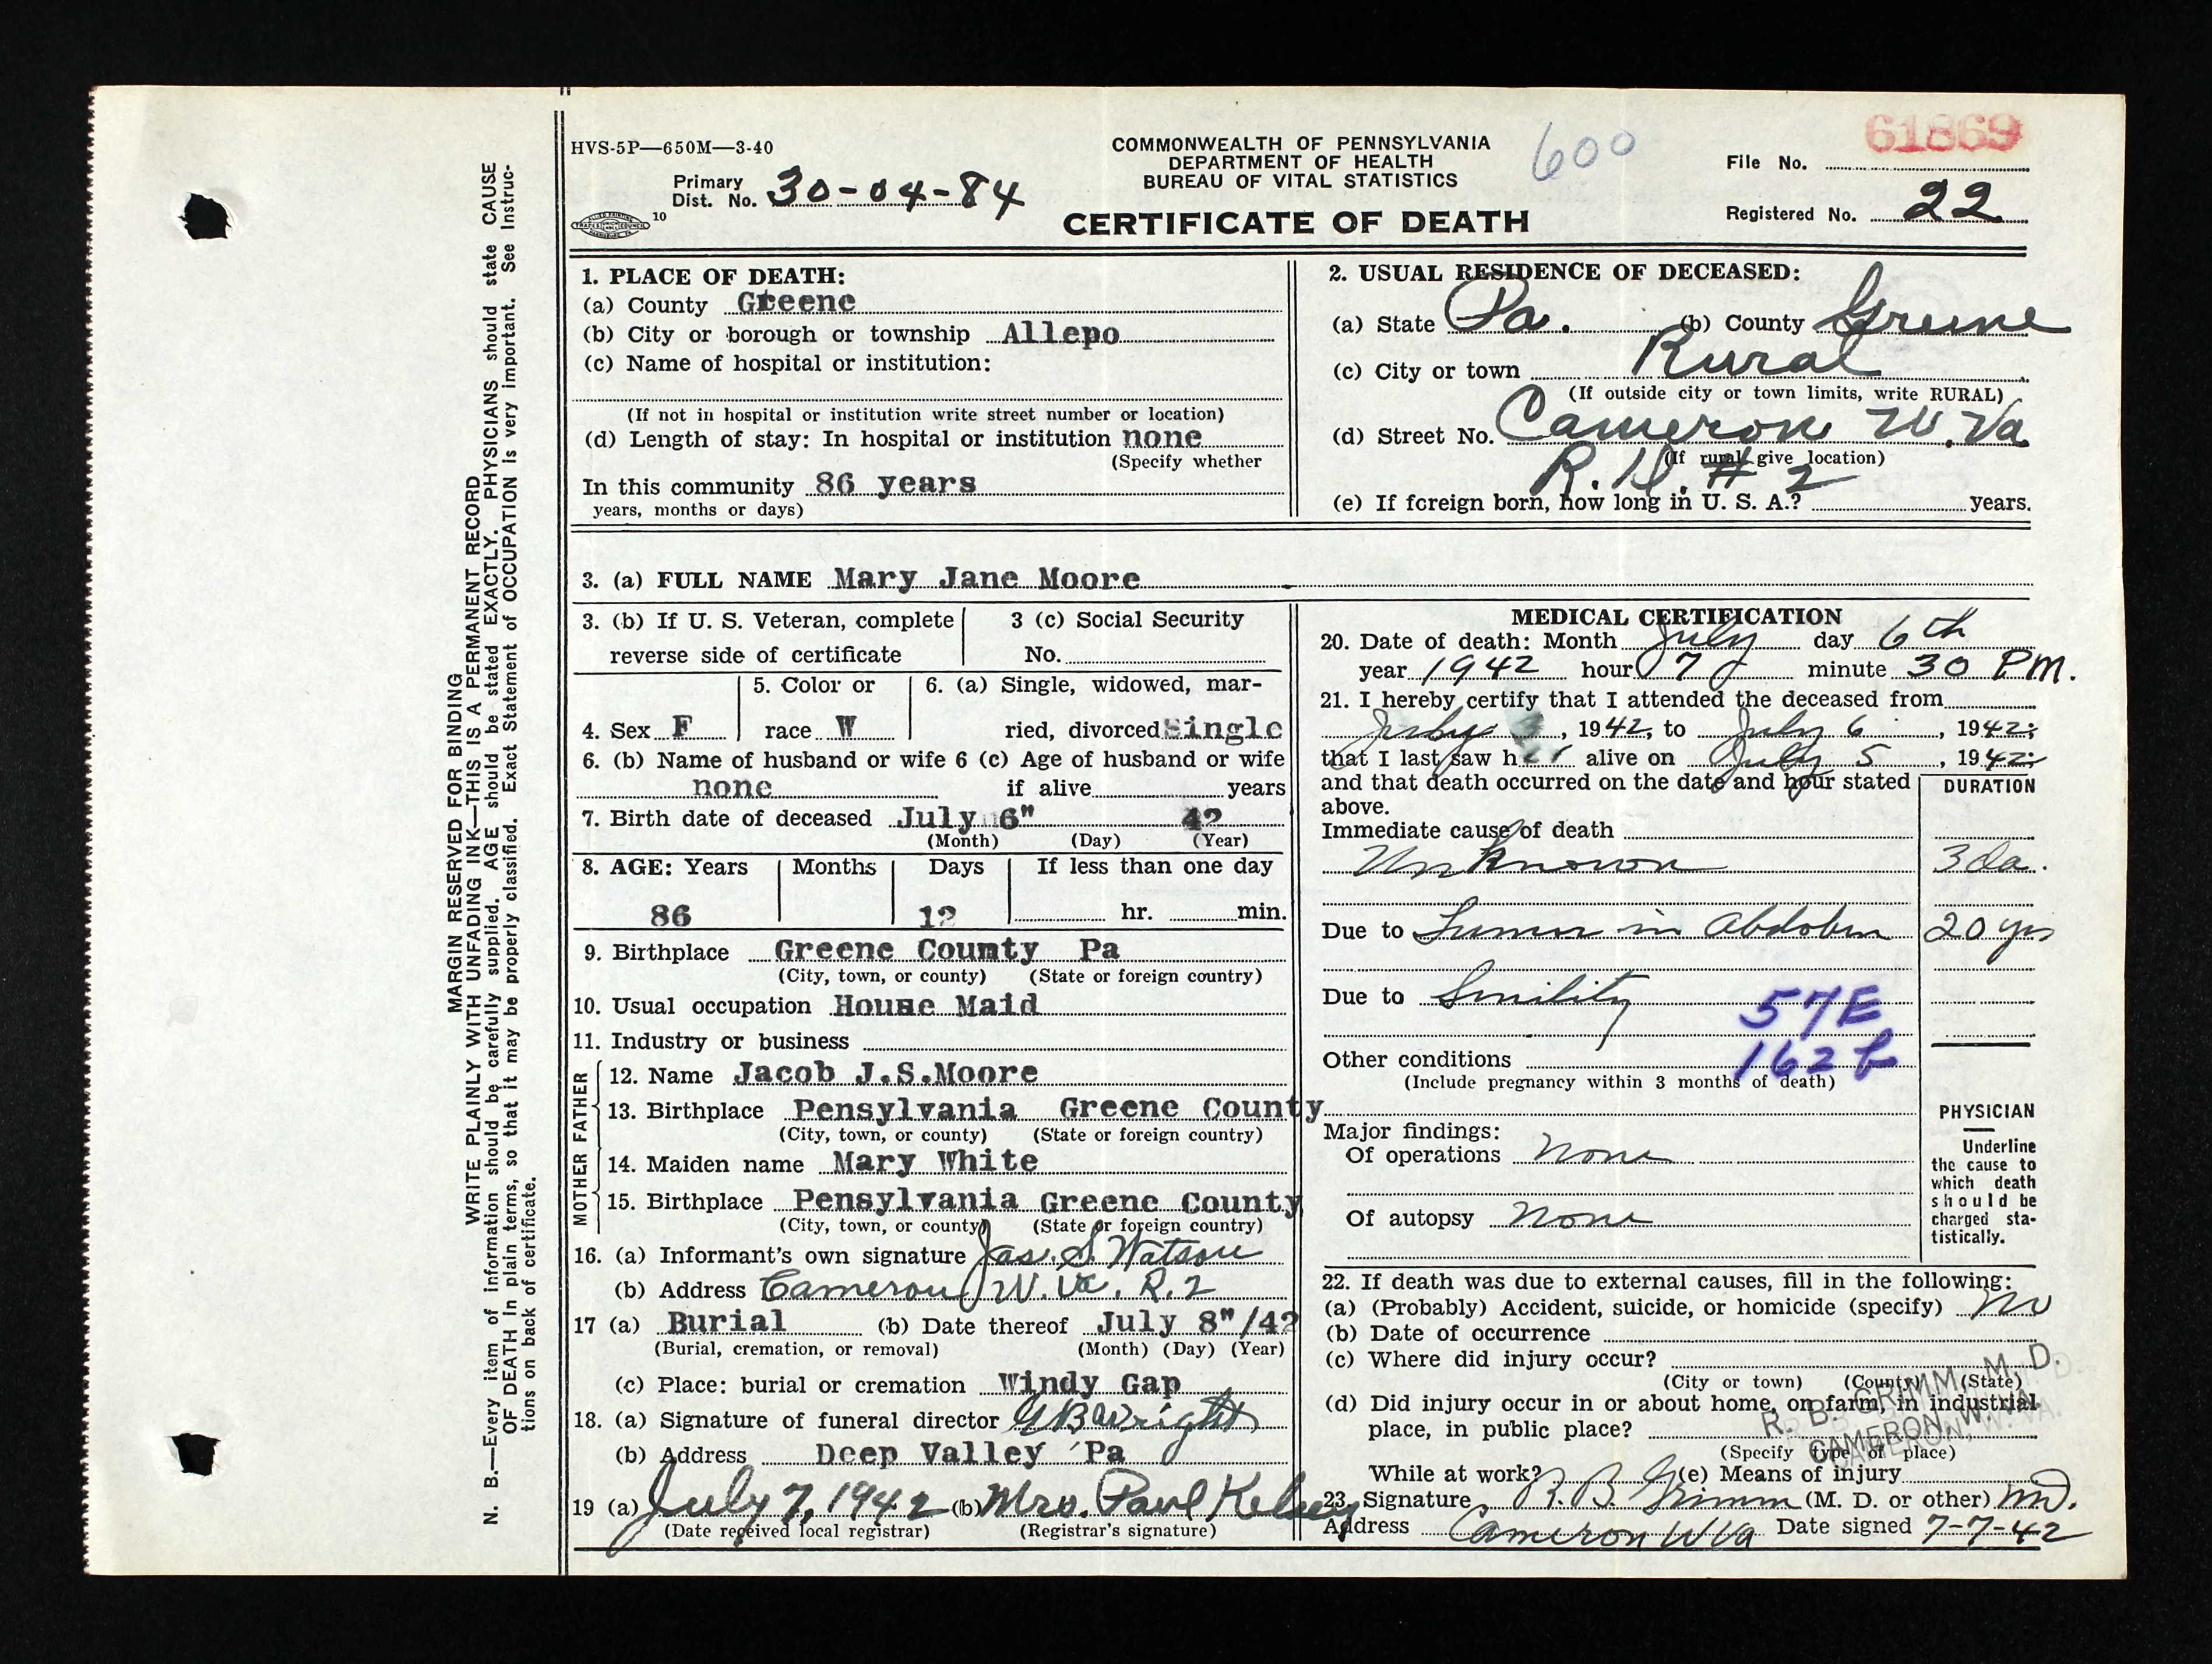 MARGIN RESERVED FOR BINDING
WRITE PLAINLY WITH UNFADING INK—THIS IS A PERMANENT RECORD
N. B.—Every item of information should be carefully supplied. AGE should be stated EXACTLY. PHYSICIANS should state CAUSE
OF DEATH in plain terms, so that it may be properly classified. Exact Statement of OCCUPATION is very important. See Instruc-
tions on back of certificate.
HVS-5P—650M—3-40
Primary
Dist. No. 30-04-84
10
COMMONWEALTH OF PENNSYLVANIA
DEPARTMENT OF HEALTH
BUREAU OF VITAL STATISTICS
CERTIFICATE OF DEATH
600
61869
File No.
Registered No. 22
1. PLACE OF DEATH:
(a) County Greene
(b) City or borough or township Allepo
(c) Name of hospital or institution:
(If not in hospital or institution write street number or location)
(d) Length of stay: In hospital or institution none
(Specify whether
In this community 86 years
years, months or days)
2. USUAL RESIDENCE OF DECEASED:
(a) State Pa. (b) County Greene
(c) City or town Rural
(If outside city or town limits, write RURAL)
(d) Street No. Cameron W. Va
(If rural give location)
R. D. # 2
(e) If foreign born, how long in U. S. A.? years.
3. (a) FULL NAME Mary Jane Moore
3. (b) If U. S. Veteran, complete
reverse side of certificate
3 (c) Social Security
No.
4. Sex F
5. Color or
race W
6. (a) Single, widowed, mar-
ried, divorced Single
6. (b) Name of husband or wife 6 (c) Age of husband or wife
none if alive years
7. Birth date of deceased July 6" 42
(Month) (Day) (Year)
8. AGE: Years Months Days If less than one day
86 12 hr. min.
9. Birthplace Greene County Pa
(City, town, or county) (State or foreign country)
10. Usual occupation House Maid
11. Industry or business
FATHER
12. Name Jacob J.S.Moore
13. Birthplace Pensylvania Greene County
(City, town, or county) (State or foreign country)
MOTHER
14. Maiden name Mary White
15. Birthplace Pensylvania Greene County
(City, town, or county) (State or foreign country)
16. (a) Informant's own signature Jas. S. Watson
(b) Address Cameron W. Va. R. 2
17 (a) Burial (b) Date thereof July 8"/42
(Burial, cremation, or removal) (Month) (Day) (Year)
(c) Place: burial or cremation Windy Gap
18. (a) Signature of funeral director G B Wright
(b) Address Deep Valley Pa
19 (a) July 7, 1942 (b) Mrs. Paul Kelsey
(Date received local registrar) (Registrar's signature)
MEDICAL CERTIFICATION
20. Date of death: Month July day 6th
year 1942 hour 7 minute 30 P.M.
21. I hereby certify that I attended the deceased from
July 3, 1942, to July 6, 1942;
that I last saw her alive on July 5, 1942;
and that death occurred on the date and hour stated
above.
DURATION
Immediate cause of death
Unknown 3 da.
Due to Tumor in Abdoben 20 yrs
Due to Senility
57E
Other conditions 162 b
(Include pregnancy within 3 months of death)
Major findings:
Of operations None
Of autopsy None
PHYSICIAN
Underline
the cause to
which death
should be
charged sta-
tistically.
22. If death was due to external causes, fill in the following:
(a) (Probably) Accident, suicide, or homicide (specify) no
(b) Date of occurrence
(c) Where did injury occur?
(City or town) (County) (State)
(d) Did injury occur in or about home, on farm, in industrial
place, in public place?
(Specify type of place)
R. B. GRIMM, M. D.
CAMERON, W. VA.
While at work? (e) Means of injury
23. Signature R. B. Grimm (M. D. or other) MD.
Address Cameron W Va Date signed 7-7-42